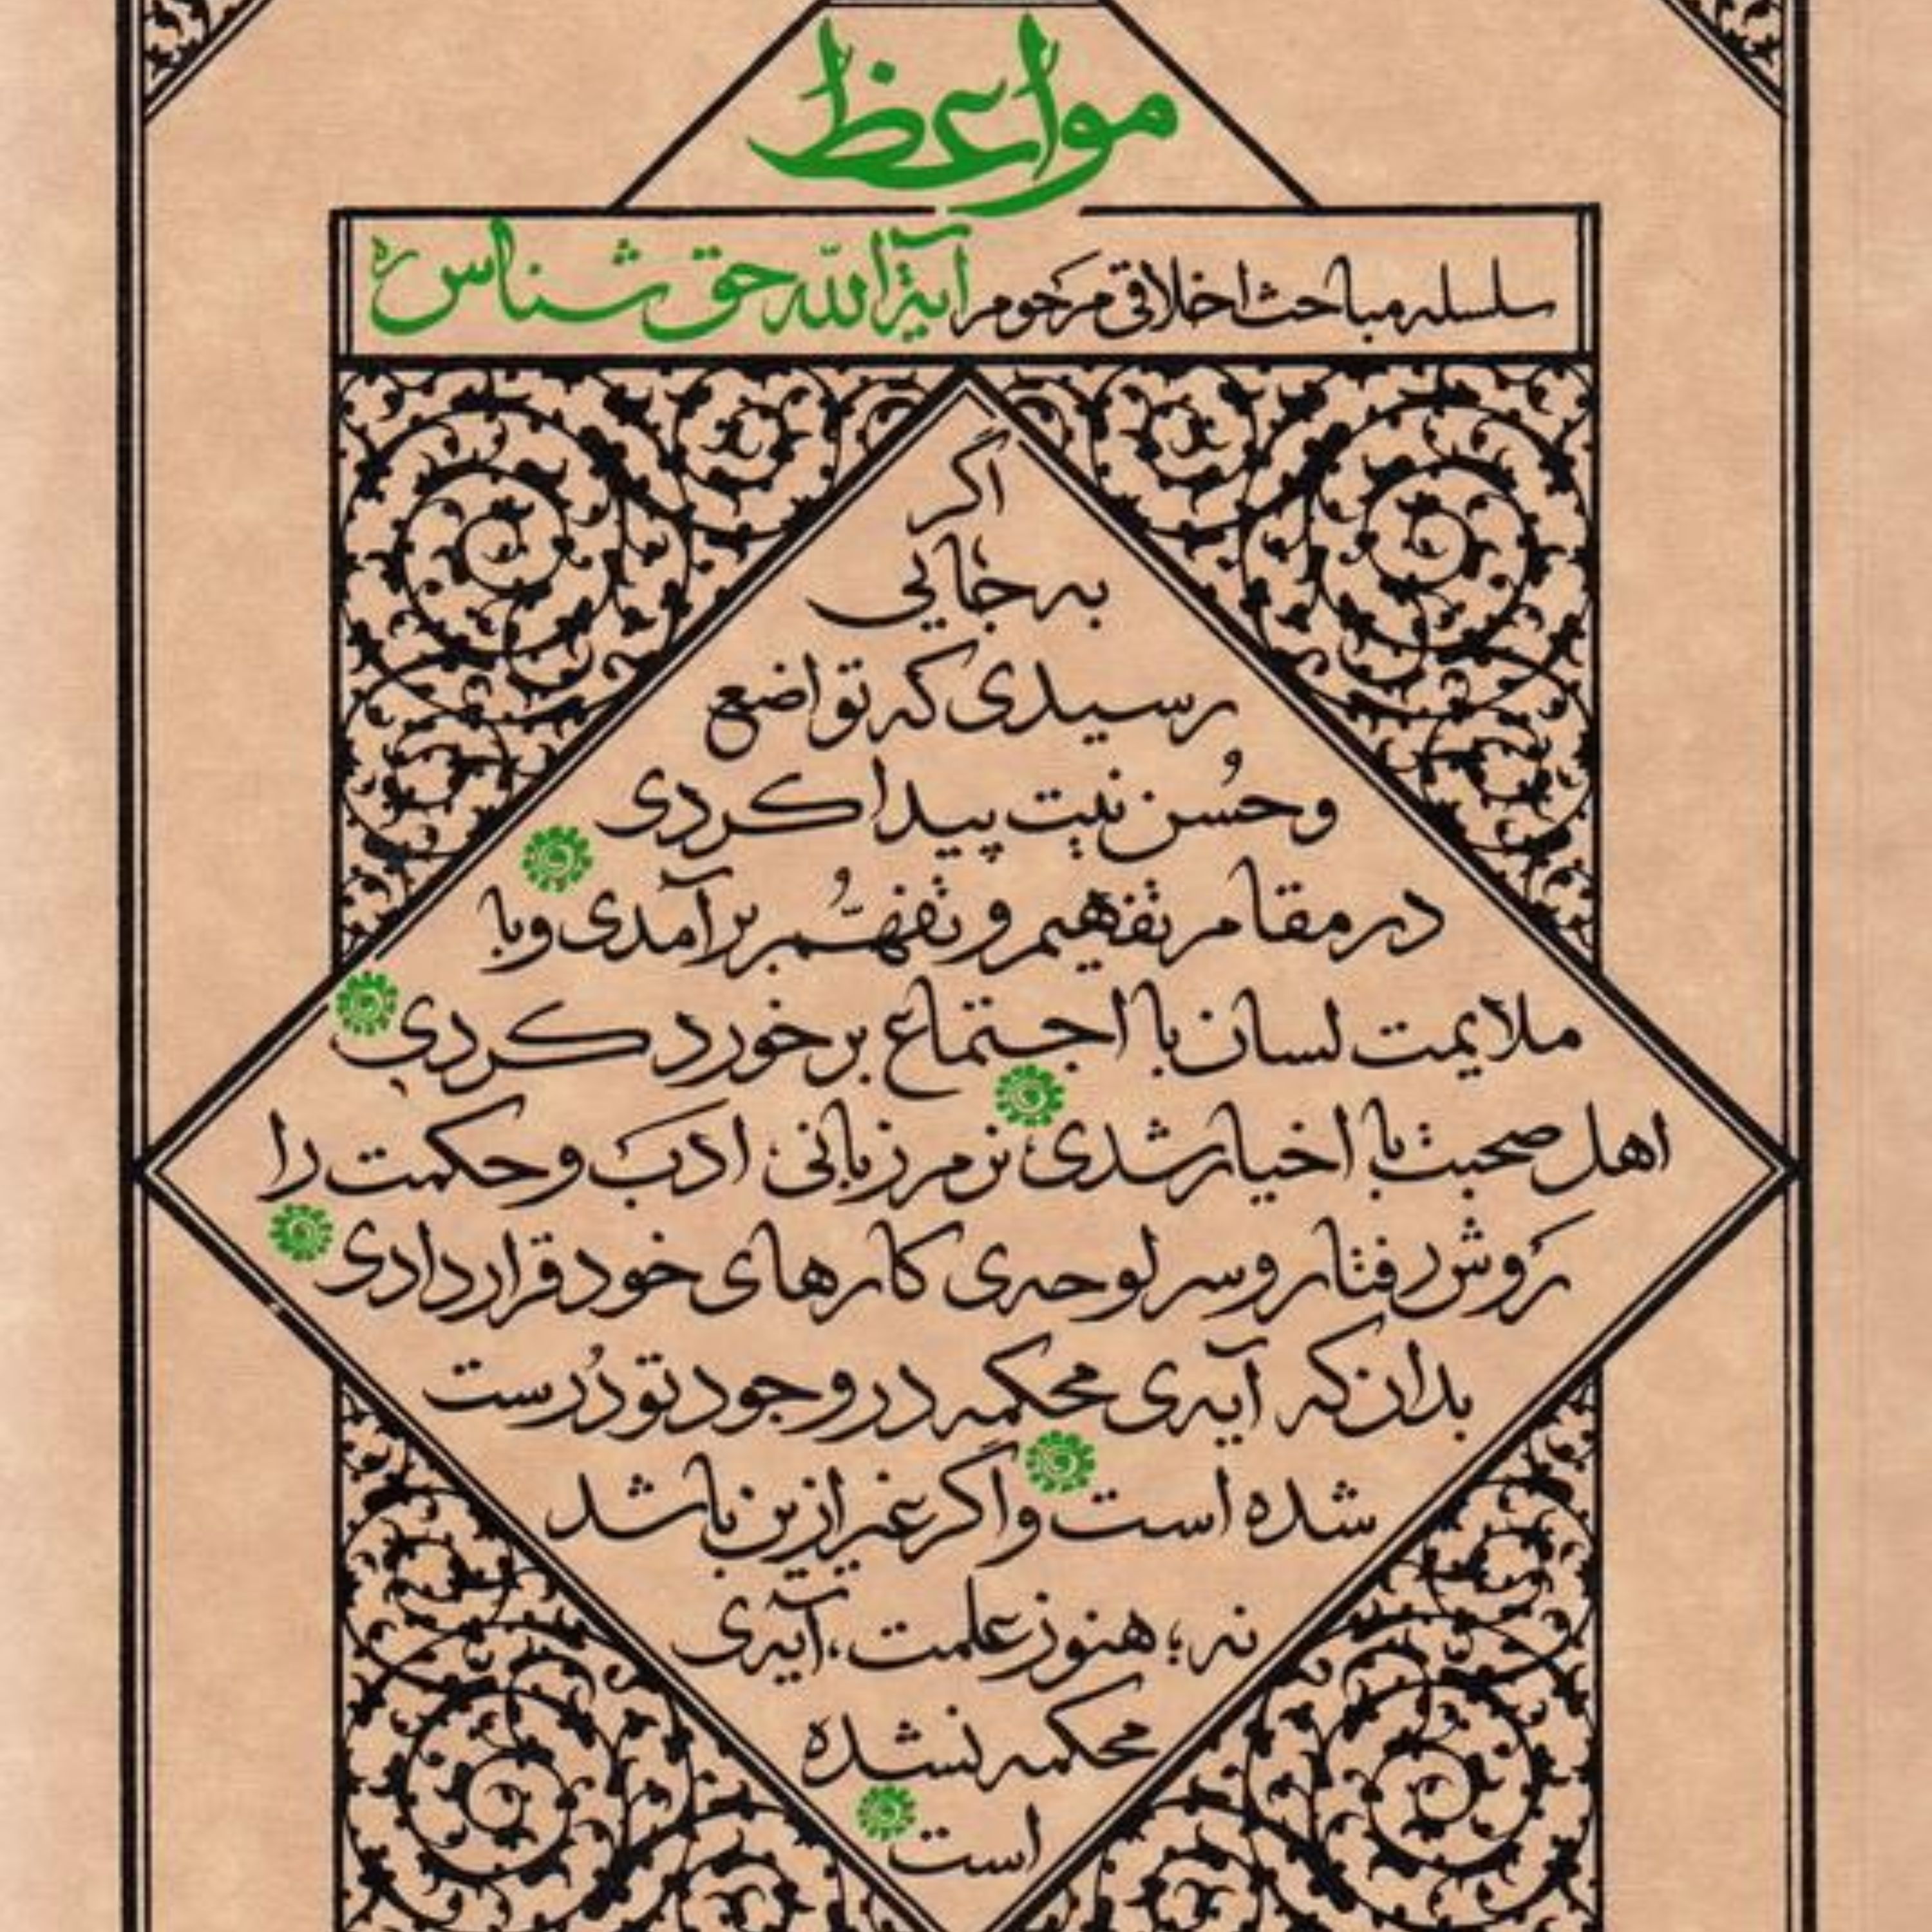 مواعظ
سلسله مباحث اخلاقی مرحوم آیة الله حق شناس ره
اگر
به جایی
رسیدی که تواضع
و حُسن نیت پیدا کردی
در مقام تفهیم و تفهُّم بر آمدی و با
ملایمت لسان با اجتماع برخورد کردی
اهل صحبت با اخیار شدی، نرم زبانی، ادب و حکمت را
رَوش رفتار و سرلوحه‌ی کارهای خود قرار دادی
بدان که آیه‌ی محکمه در وجود تو دُرست
شده است و اگر غیر ازین باشد
نه؛ هنوز علمت، آیه‌ی
محکمه نشده
است